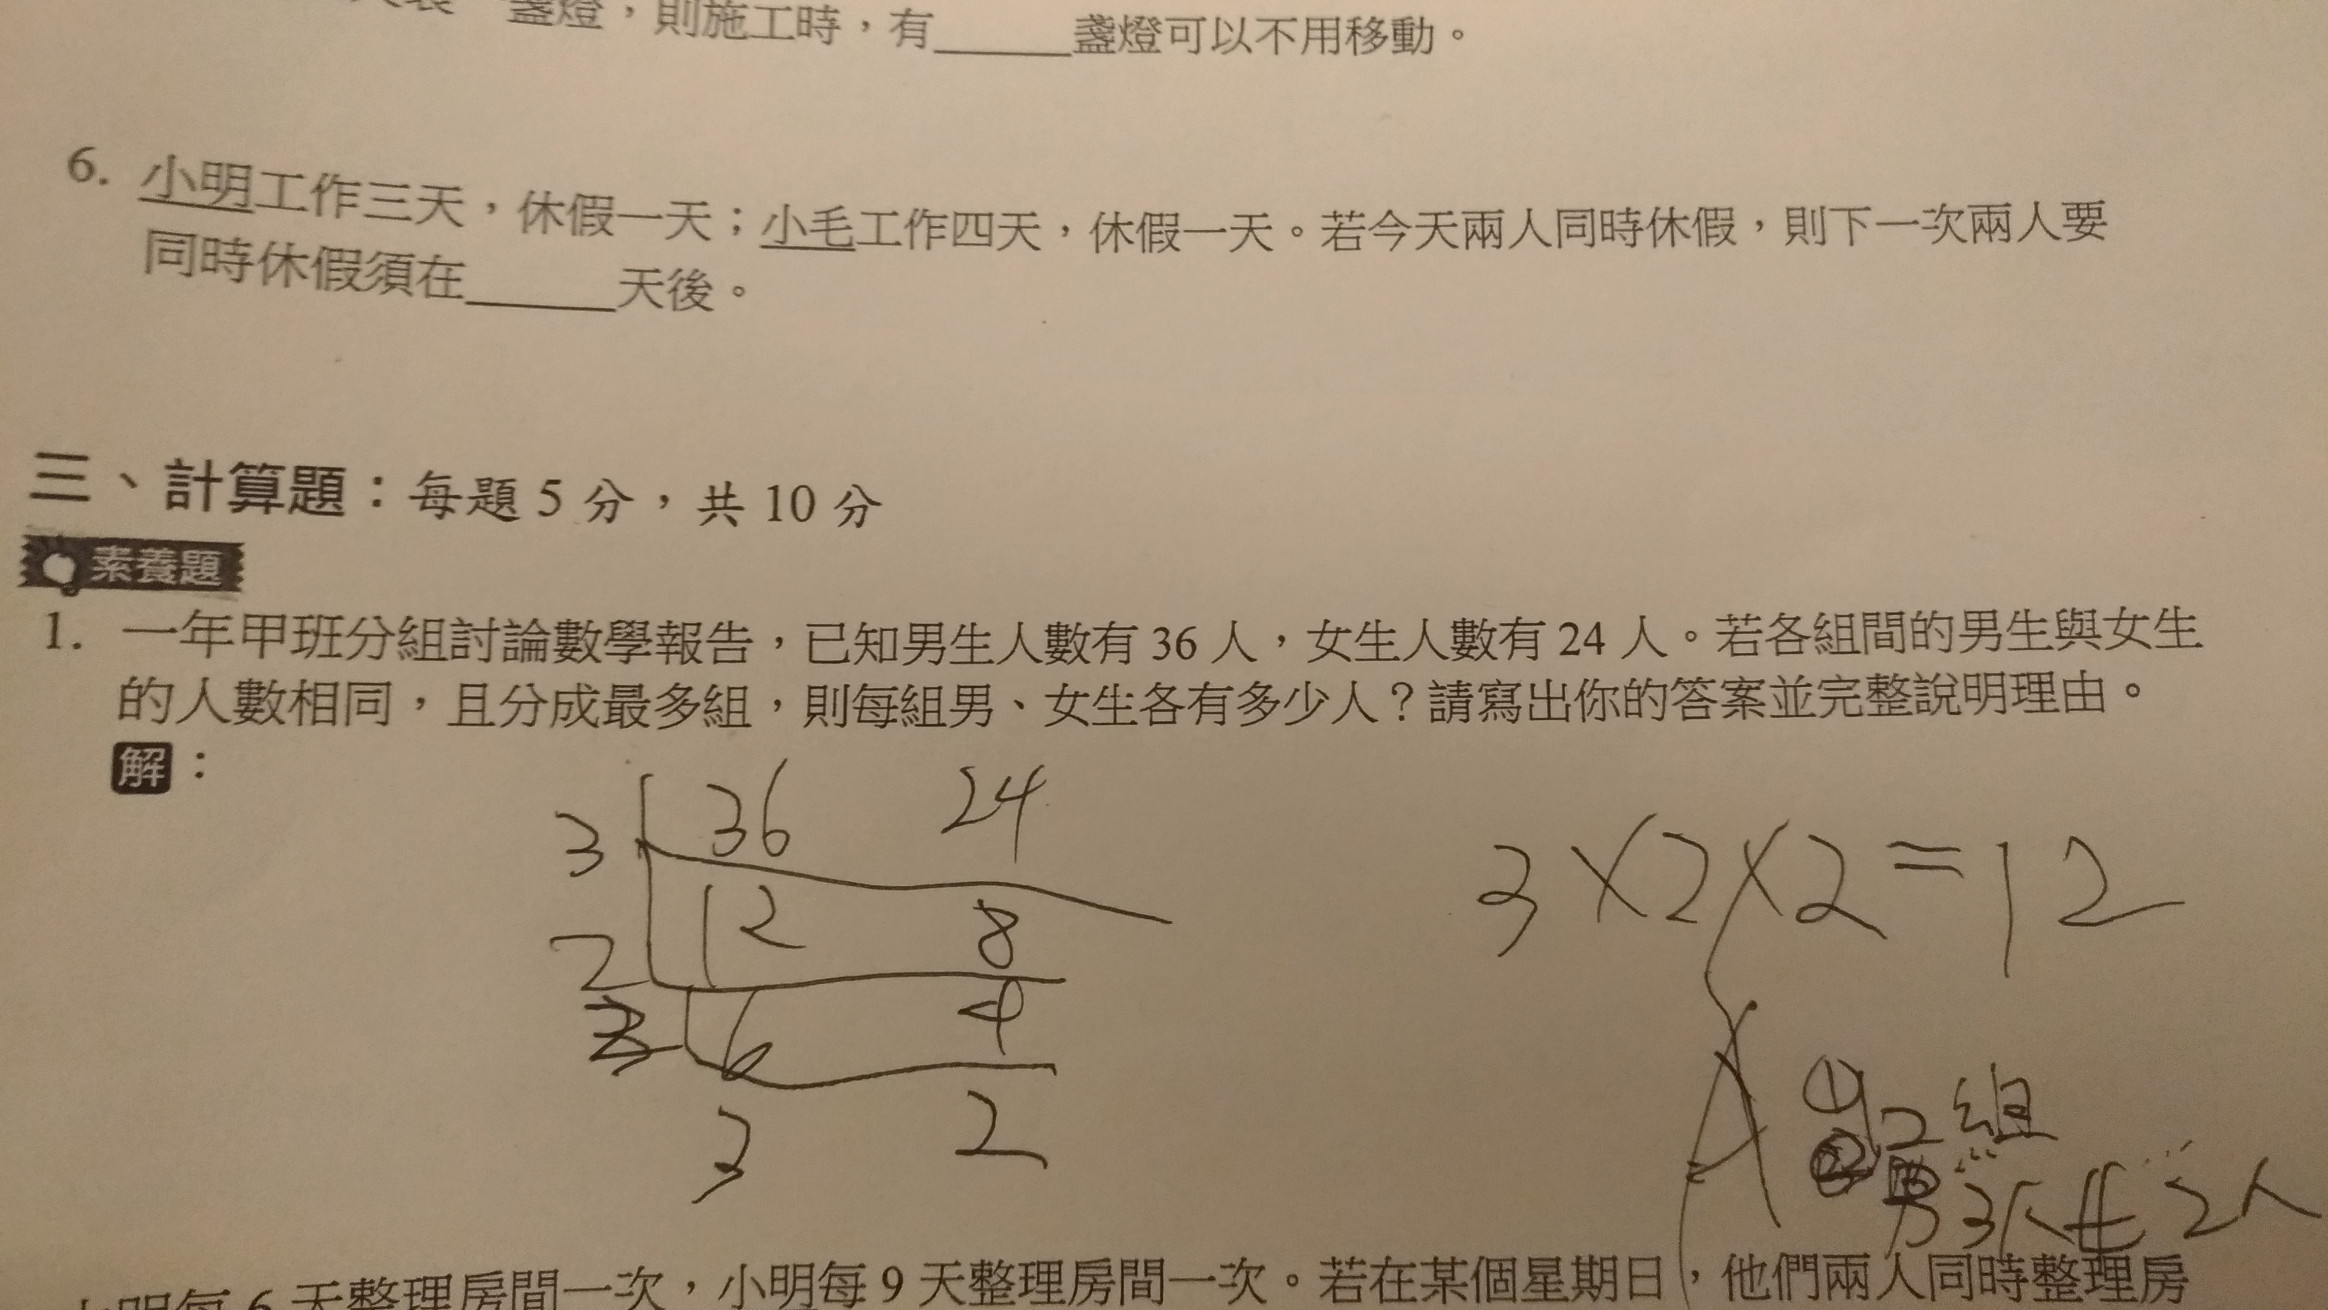 盞燈，則施工時，有______盞燈可以不用移動。
6. 小明工作三天，休假一天；小毛工作四天，休假一天。若今天兩人同時休假，則下一次兩人要
同時休假須在______天後。
三、計算題：每題 5 分，共 10 分
素養題
1. 一年甲班分組討論數學報告，已知男生人數有 36 人，女生人數有 24 人。若各組間的男生與女生
的人數相同，且分成最多組，則每組男、女生各有多少人？請寫出你的答案並完整說明理由。
解：
3 36 24
2 12 8
6 4
3 2
3×2×2=12
A ① 12組
② 男3人 女2人
天整理房間一次，小明每 9 天整理房間一次。若在某個星期日，他們兩人同時整理房